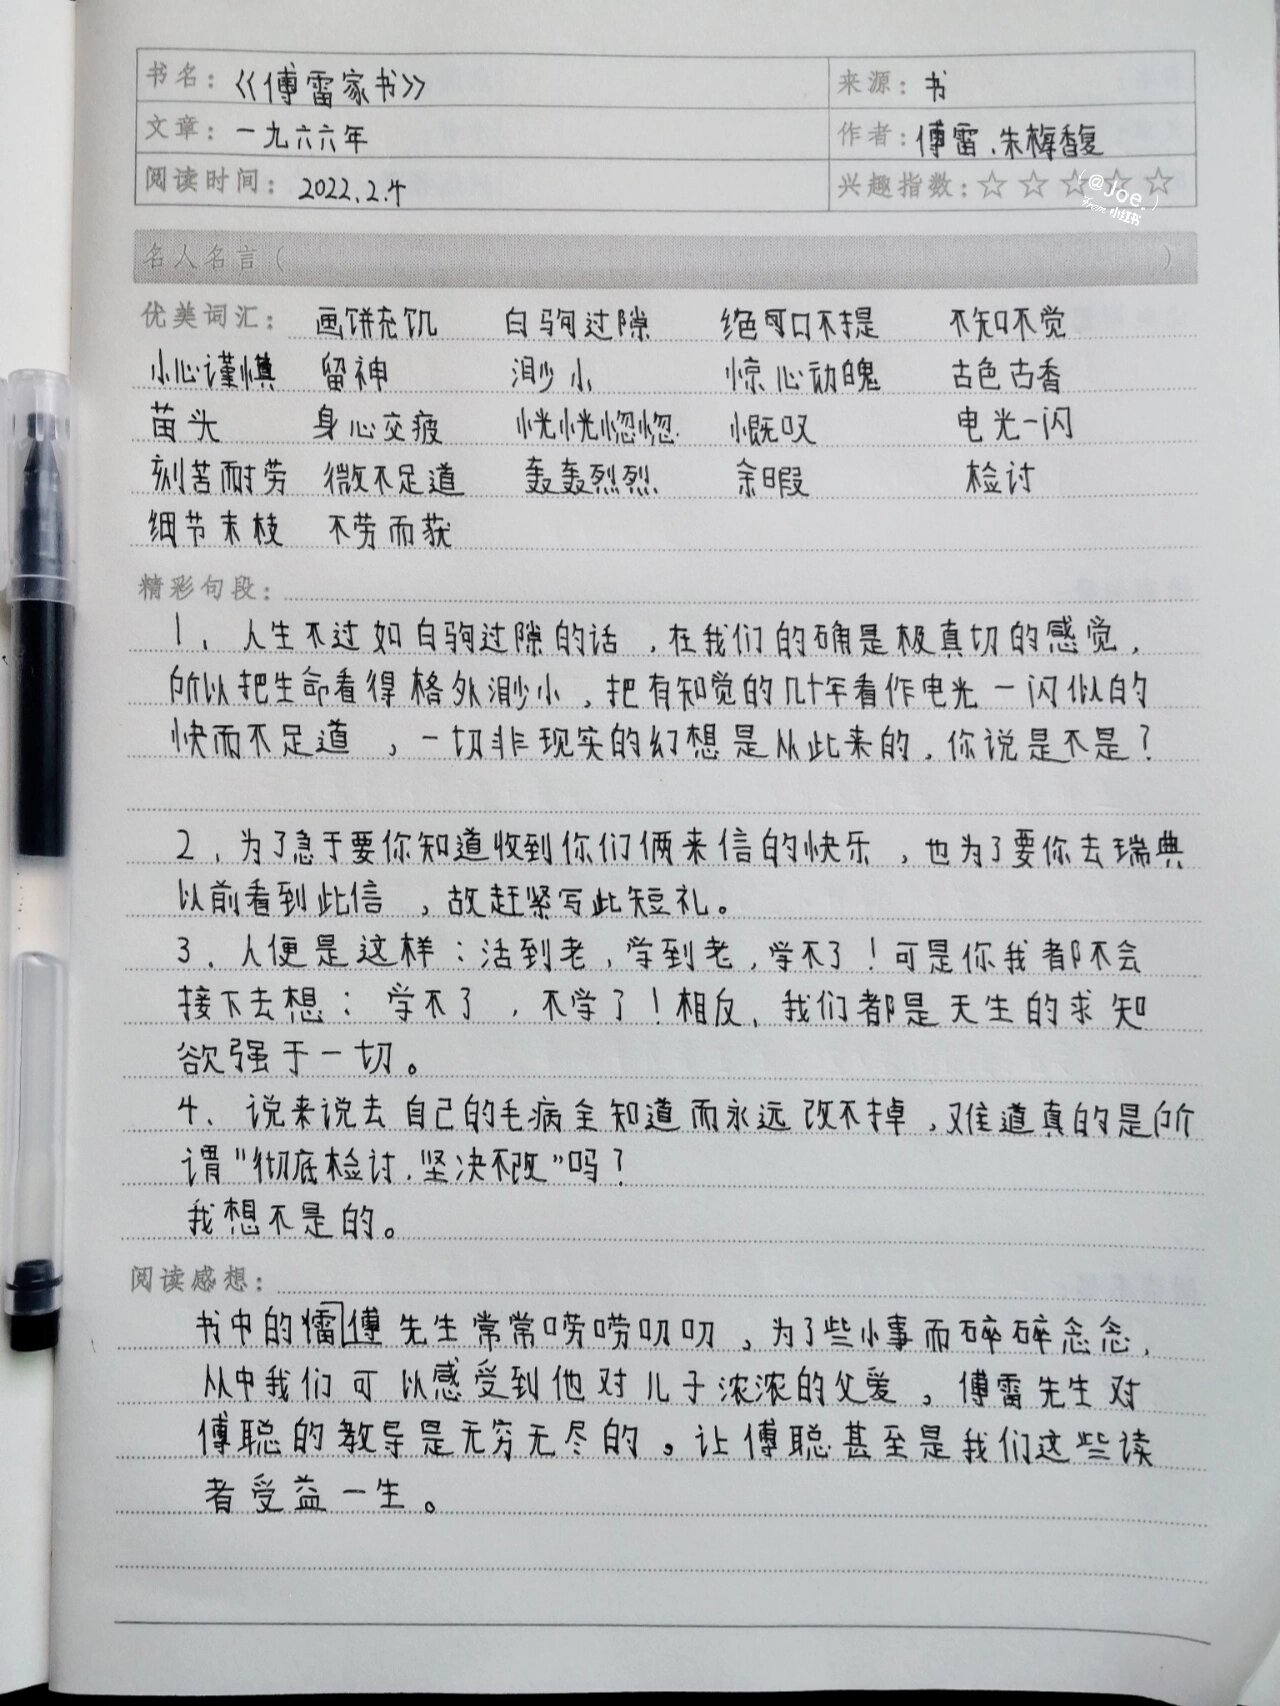 书名：《傅雷家书》 来源：书
文章：一九六六年 作者：傅雷、朱梅馥
阅读时间：2022.2.4 兴趣指数：☆☆☆☆☆
(@Joe.)
From 小红书
名人名言（ ）
优美词汇：画饼充饥 白驹过隙 绝口不提 不知不觉
小心谨慎 留神 渺小 惊心动魄 古色古香
苗头 身心交疲 恍恍惚惚 慨叹 电光一闪
刻苦耐劳 微不足道 轰轰烈烈 余暇 检讨
细节末枝 不劳而获
精彩句段：
1、人生不过如白驹过隙的话，在我们的确是极真切的感觉，
所以把生命看得格外渺小，把有知觉的几十年看作电光一闪似的
快而不足道，一切非现实的幻想是从此来的，你说是不是？
2、为了急于要你知道收到你们俩来信的快乐，也为了要你去瑞典
以前看到此信，故赶紧写此短礼。
3、人便是这样：活到老，学到老，学不了！可是你我都不会
接下去想：学不了，不学了！相反，我们都是天生的求知
欲强于一切。
4、说来说去自己的毛病全知道而永远改不掉，难道真的是所
谓"彻底检讨，坚决不改"吗？
我想不是的。
阅读感想：
书中的傅先生常常唠唠叨叨，为了些小事而碎碎念念，
从中我们可以感受到他对儿子浓浓的父爱，傅雷先生对
傅聪的教导是无穷无尽的。让傅聪甚至是我们这些读
者受益一生。